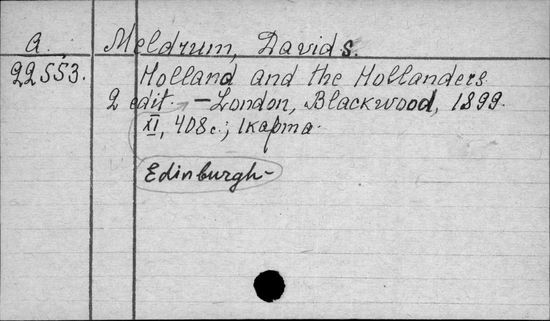 A. Meldrum, David S.
22553. Holland and the Hollanders
2 edit. – London, Blackwood, 1899.
XI, 408 с.; 1карта.
Edinburgh –